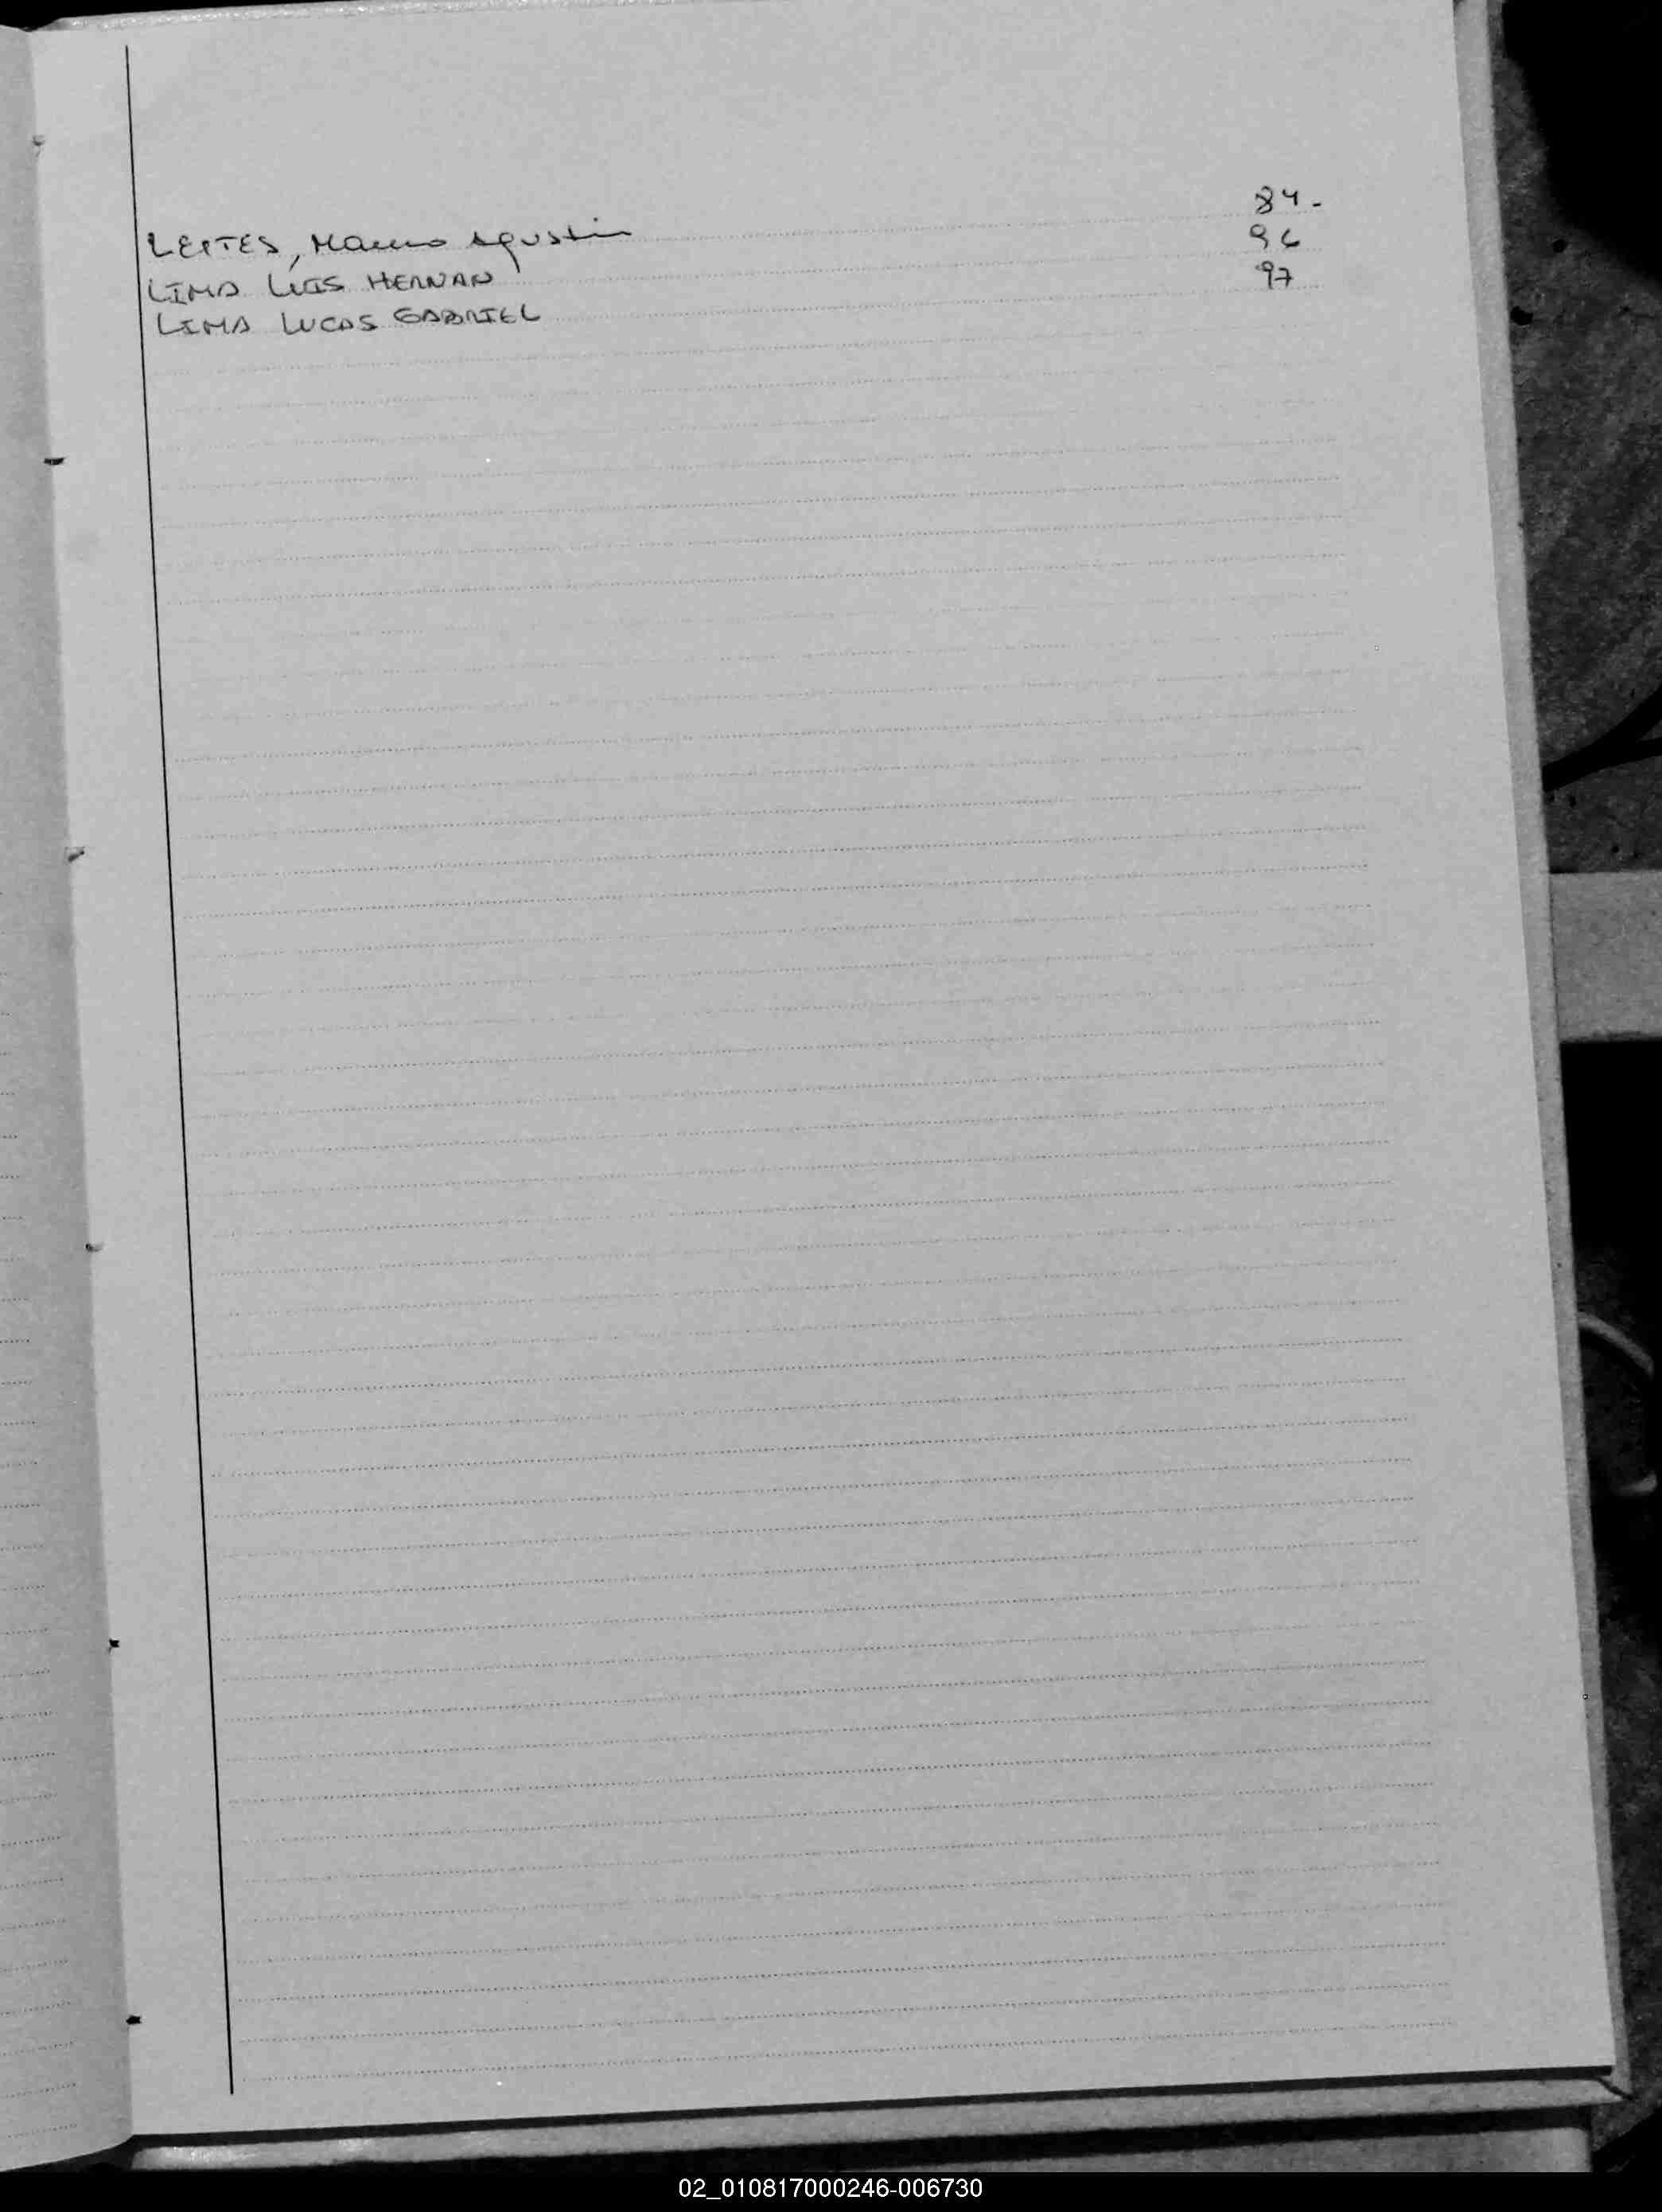 LEITES, Mauro Agustin 84-
LIMA LUIS HERNAN 96
LIMA LUCAS GABRIEL 97
02_010817000246-006730